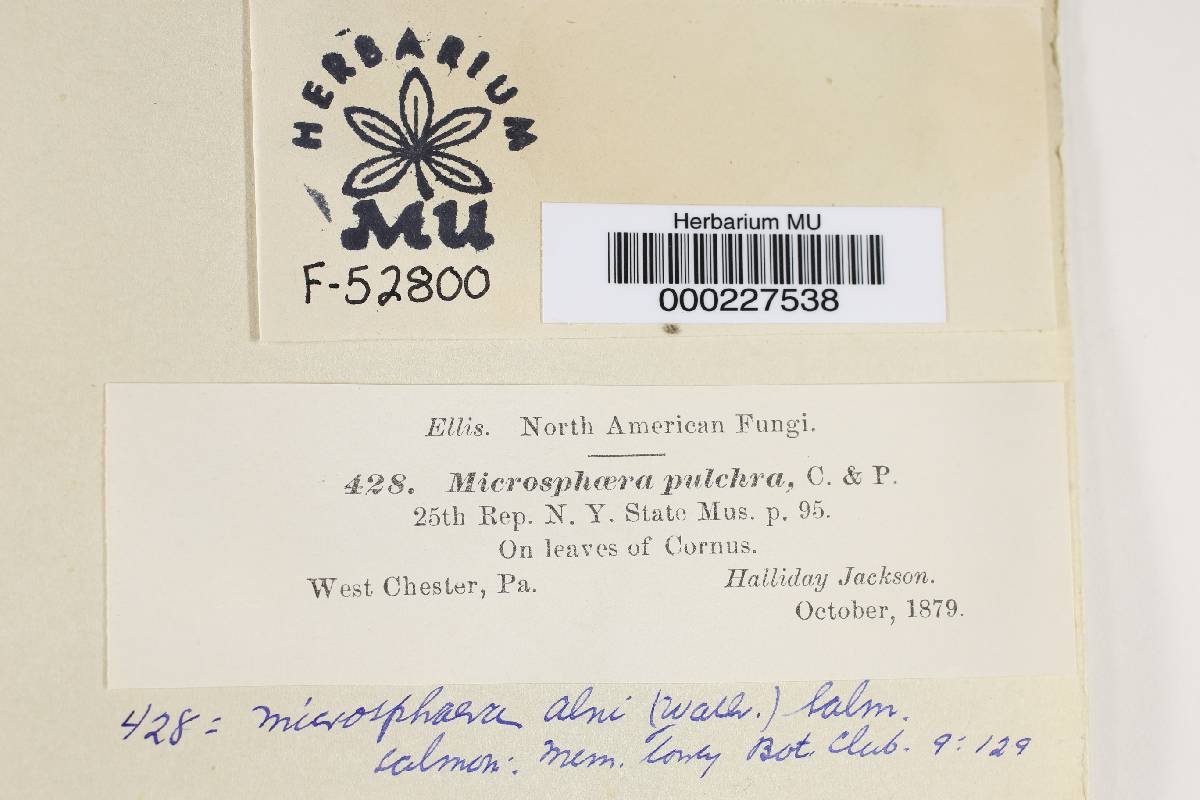 HERBARIUM
MU
F-52800
Herbarium MU
000227538
Ellis. North American Fungi.
428. Microsphæra pulchra, C. & P.
25th Rep. N. Y. State Mus. p. 95.
On leaves of Cornus.
West Chester, Pa.
Halliday Jackson.
October, 1879.
428 = Microsphaera alni (Wallr.) Salm.
Salmon: Mem. Torrey Bot. Club. 9: 129